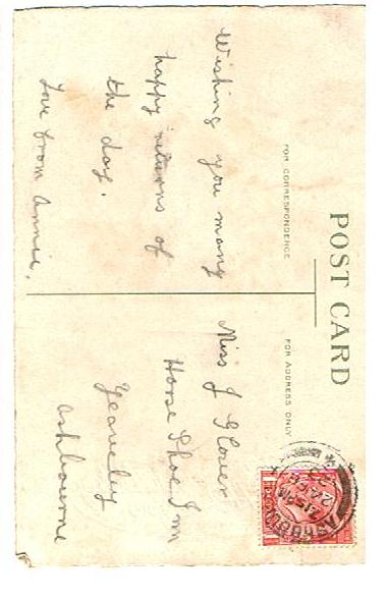 POST CARD
FOR CORRESPONDENCE
FOR ADDRESS ONLY
Wishing you many
happy returns of
the day.
Love from Annie.
Miss J Glover
Horse Shoe Inn
Yeaveley
Ashbourne